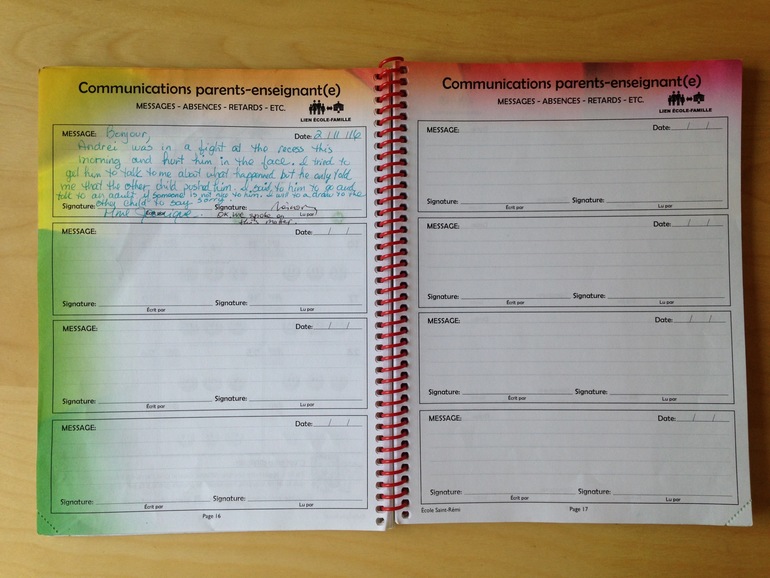 Communications parents-enseignant(e)
MESSAGES - ABSENCES - RETARDS - ETC.
LIEN ÉCOLE-FAMILLE
MESSAGE: Bonjour, Date: 2/11/16
Andrei was in a fight at the recess this
morning and hurt him in the face. I tried to
get him to talk to me about what happened but he only told
me that the other child pushed him. I said to him to go and
talk to an adult if someone is not nice to him. I will to a draw to the
other child to say sorry.
Signature: Mme Signature:
OK we spoke on
this matter.
MESSAGE: Date: / /
Signature: Signature:
Écrit par Lu par
MESSAGE: Date: / /
Signature: Signature:
Écrit par Lu par
MESSAGE: Date: / /
Signature: Signature:
Écrit par Lu par
Page 16
Communications parents-enseignant(e)
MESSAGES - ABSENCES - RETARDS - ETC.
LIEN ÉCOLE-FAMILLE
MESSAGE: Date: / /
Signature: Signature:
Écrit par Lu par
MESSAGE: Date: / /
Signature: Signature:
Écrit par Lu par
MESSAGE: Date: / /
Signature: Signature:
Écrit par Lu par
MESSAGE: Date: / /
Signature: Signature:
Écrit par Lu par
École Saint-Rémi Page 17